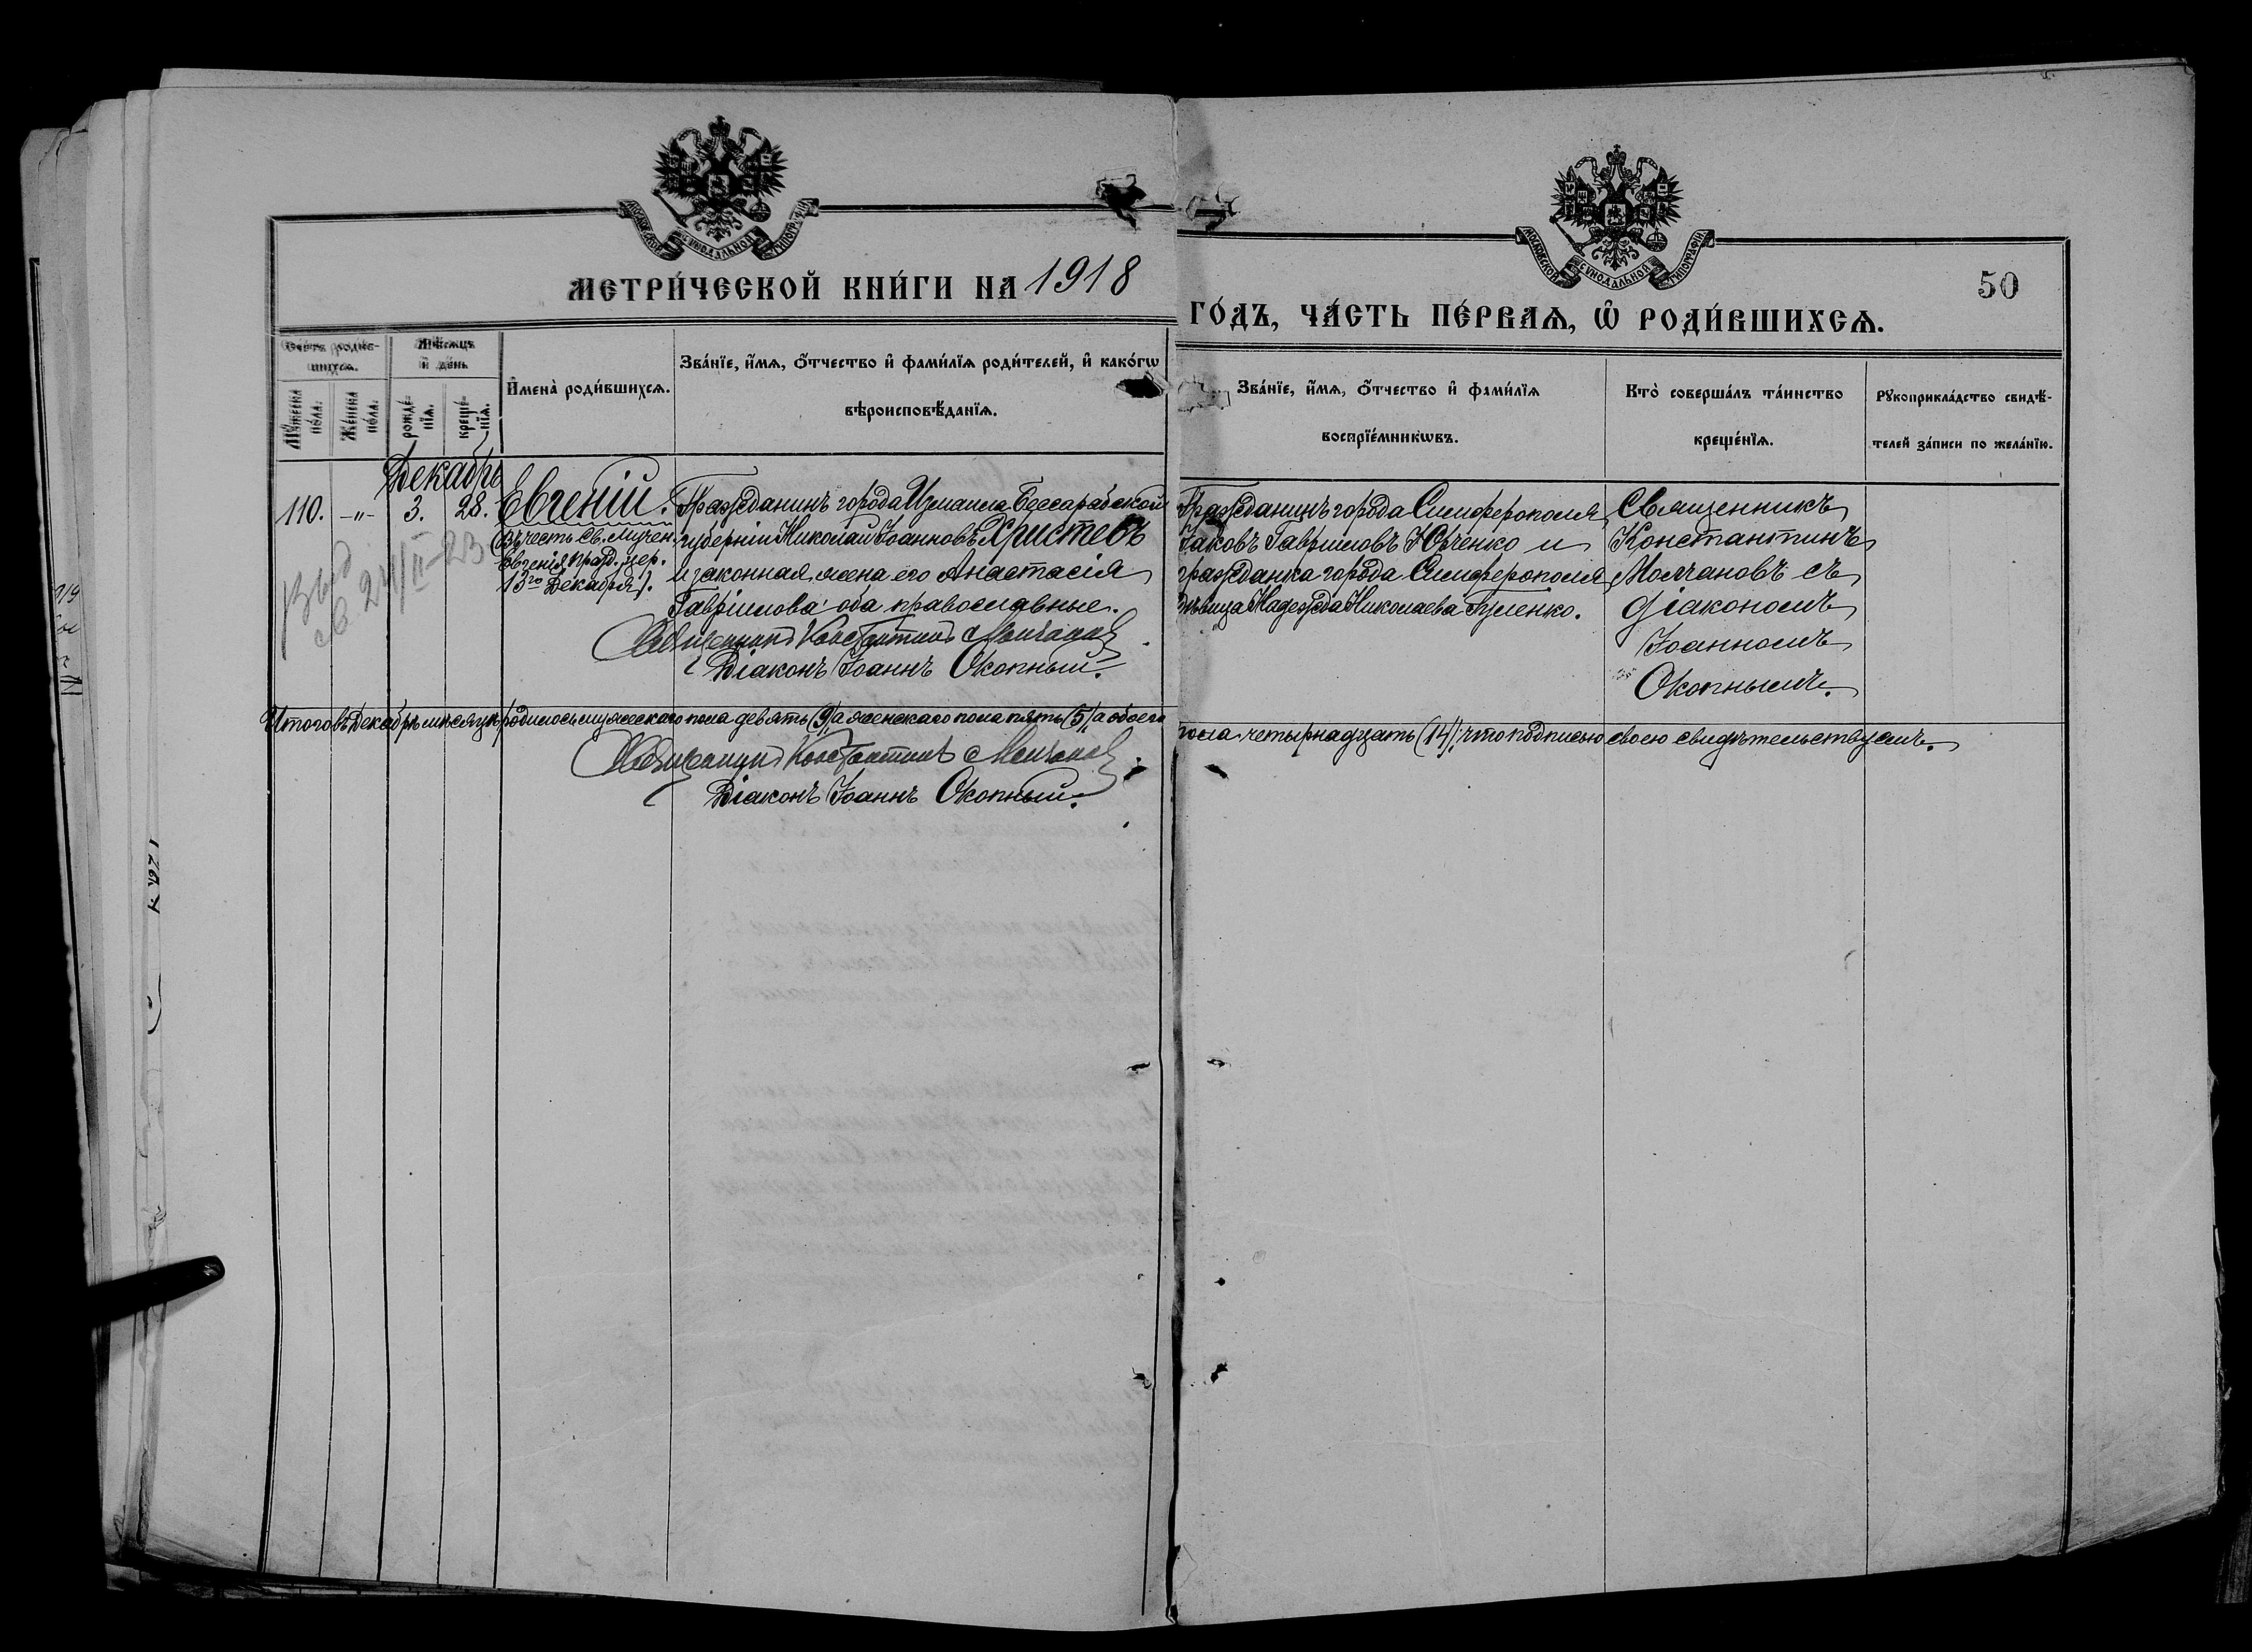 МОСКОВСКОЙ СѴНОДАЛЬНОЙ ТИПОГРАФІИ
МЕТРИ́ЧЕСКОЙ КНИ́ГИ НА 1918
МОСКОВСКОЙ СѴНОДАЛЬНОЙ ТИПОГРАФІИ
50
ГО́ДЪ, ЧА́СТЬ ПЕ́РВАѦ, Ѡ҆ РОДИ́ВШИХСѦ.
Счетъ роди́в-
шихсѧ.
Мѣ́сѧцъ
и҆ де́нь
Му́жеска
по́ла.
Же́нска
по́ла.
рожде́-
нїѧ.
креще́-
нїѧ.
И҆мена̀ роди́вшихсѧ.
Зва́нїе, и҆́мѧ, ѻ҆́тчество и҆ фами́лїѧ роди́телей, и҆ како́гѡ
вѣроисповѣ́данїѧ.
Зва́нїе, и҆́мѧ, ѻ҆́тчество и҆ фами́лїѧ
воспрїе́мникѡвъ.
Кто̀ соверша́лъ та́инство
креще́нїѧ.
Рꙋкоприкла́дство свидѣ́-
телей за́писи по жела́нїю.
Декабрь
110.
-"-
3.
28.
Евгеній.
(Въ честь Св. Мучен.
Евгенія, празд. цер.
13го Декабря).
Гражданинъ города Измаила Бессарабской
губерніи Николай Іоанновъ Христевъ
и законная жена его Анастасія
Гавріилова: оба православные.
Священникъ Константинъ Молчановъ
Діаконъ Іоаннъ Окопный.
Гражданинъ города Симферополя
Іаковъ Гавріиловъ Юрченко и
гражданка города Симферополя
дѣвица Надежда Николаева Гуленко.
Священникъ
Константинъ
Молчановъ съ
діакономъ
Іоанномъ
Окопнымъ.
Выд
св. 24/II-23
Итого въ Декабрѣ мѣсяцѣ родилось мужескаго пола девять (9), а женскаго пола пять (5), а обоего
пола четырнадцать (14); что подписью своею свидѣтельствуемъ.
Священникъ Константинъ Молчановъ
Діаконъ Іоаннъ Окопный.